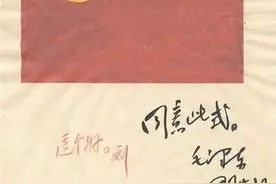 同意此式。
毛泽东
这个好。刘